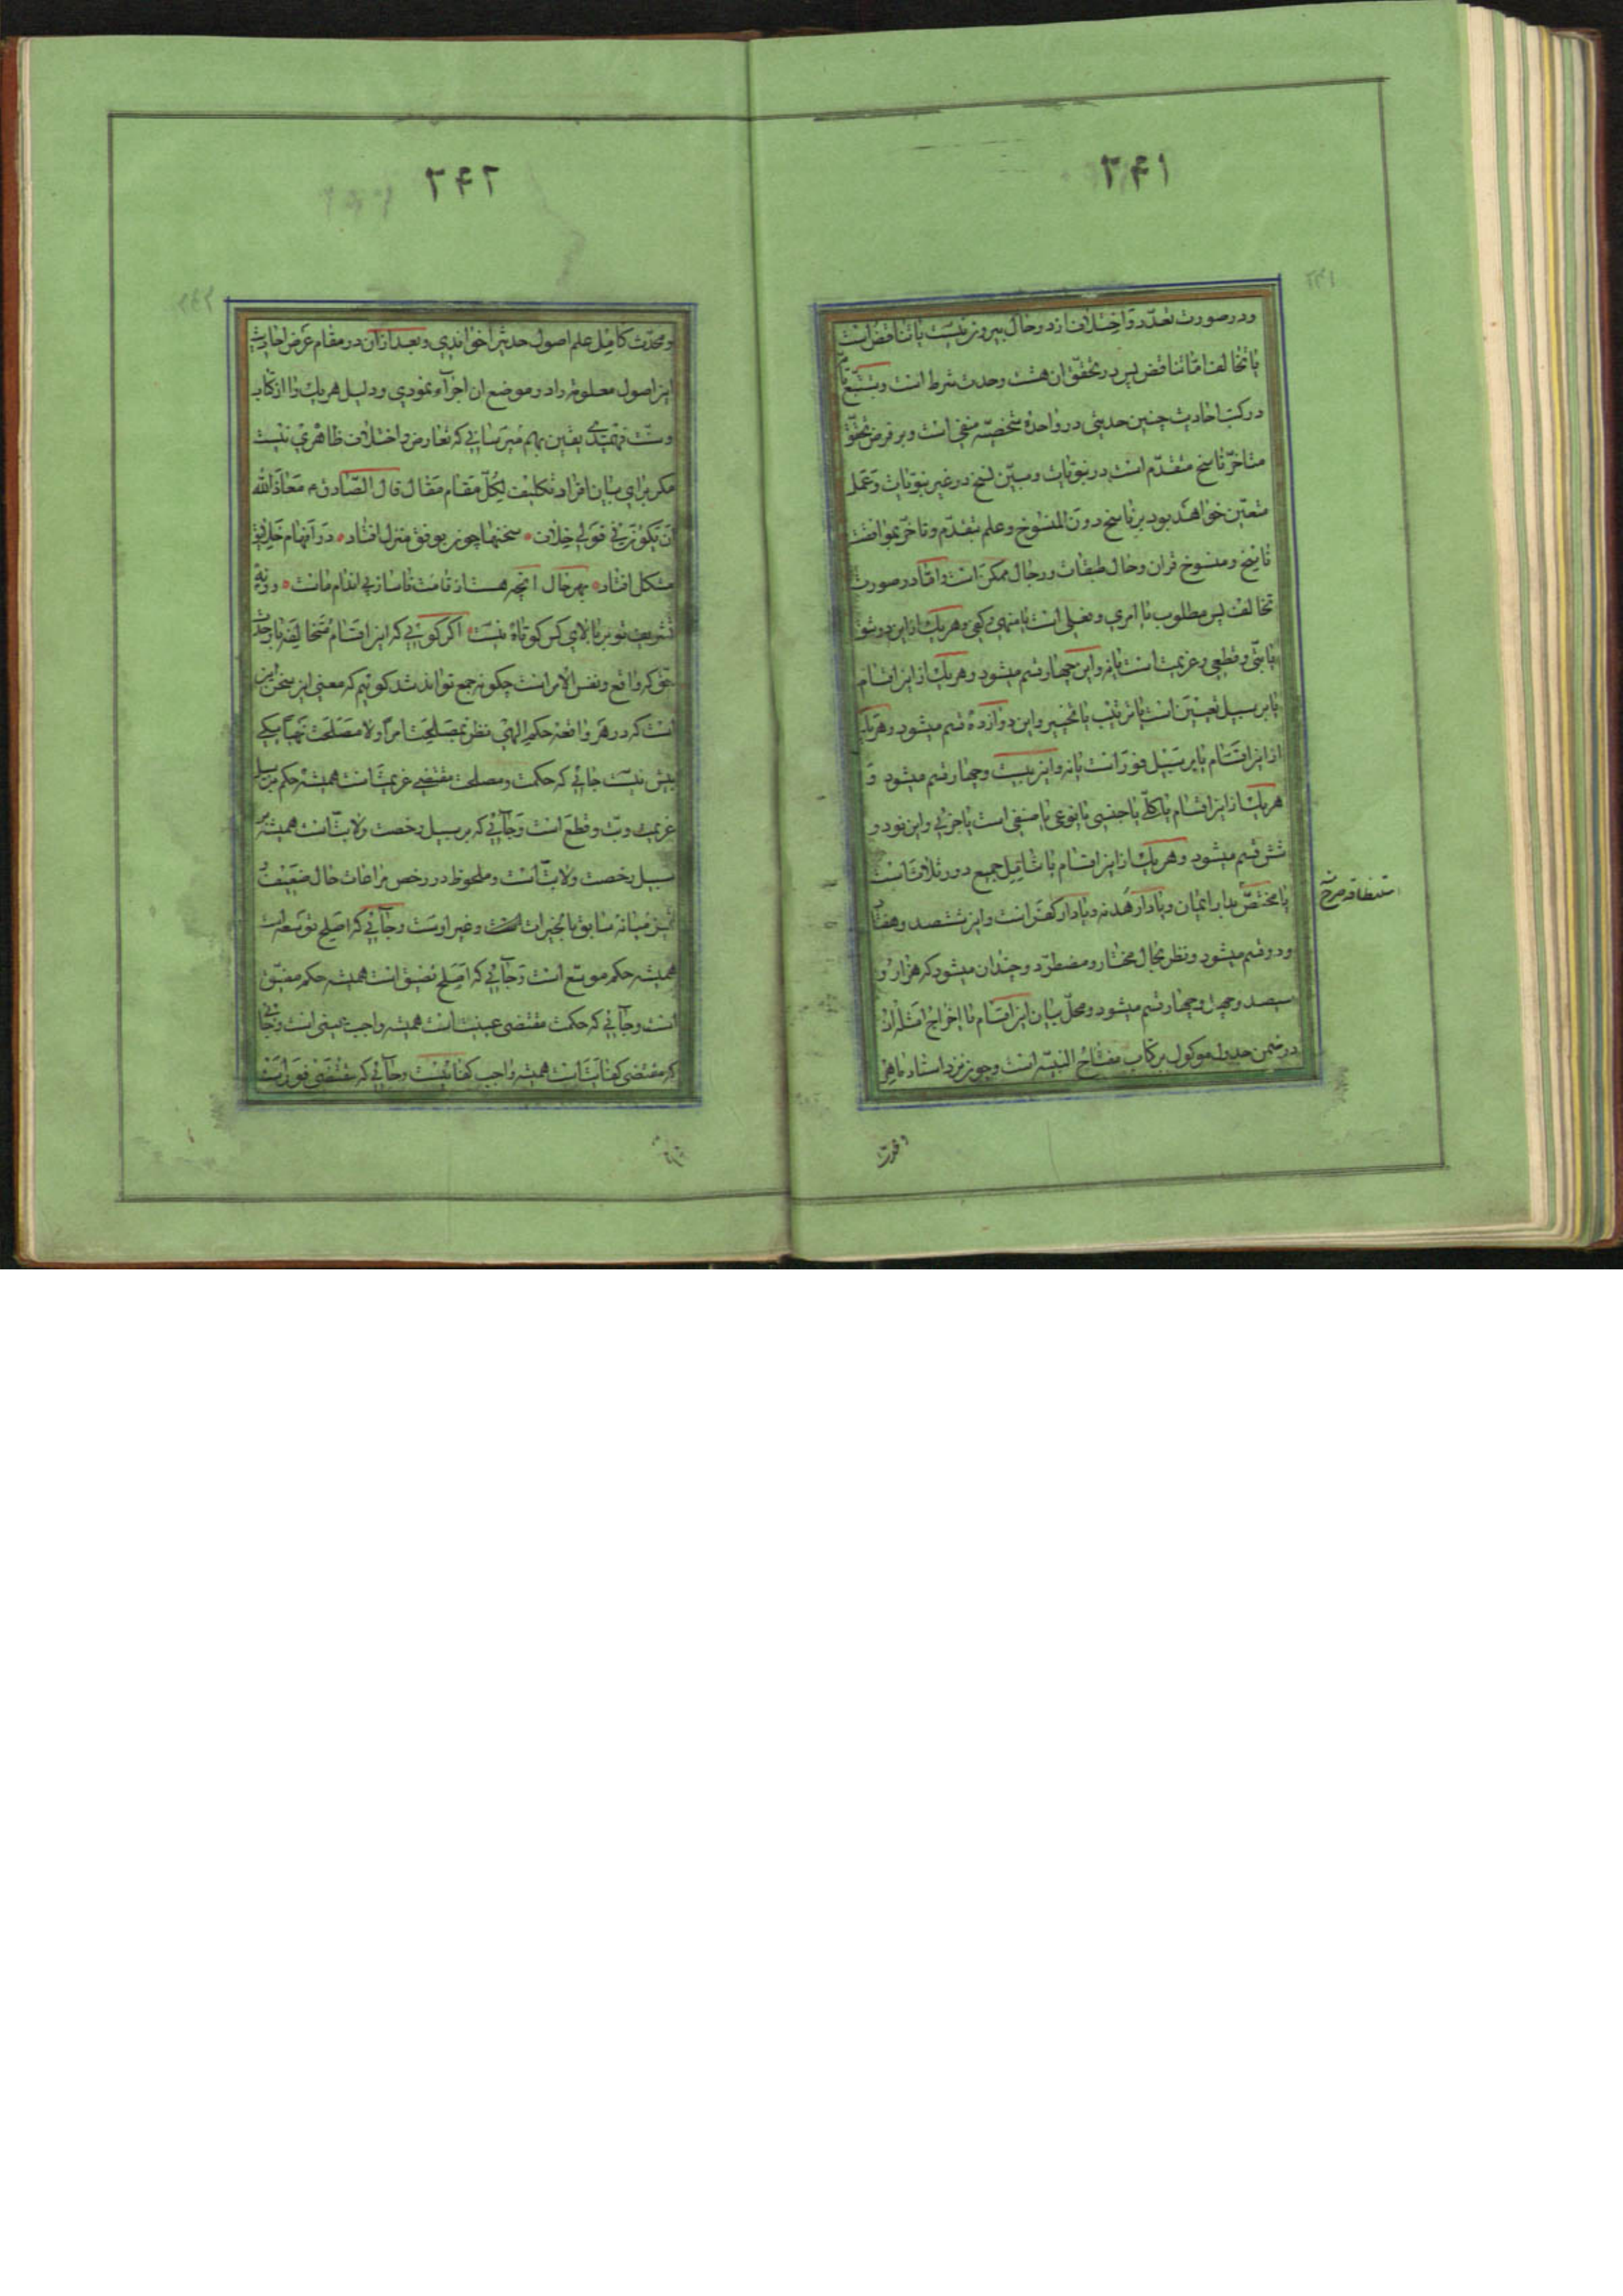 ۲۶۱
ودر صورت تعدّد و اختلاف از دو حال بیرون نیست یا تناقض است
یا تخالف امّا تناقض پس در تحقّق آن هشت وحدت شرط است وبتتبّع تامّ
در کتب احادیث چنین حدیثی در واحدهٔ شخصیّه منفی است وبر فرض تحقّق
متاخّر ناسخ متقدّم است در نبویّات ومبیّن نسخ در غیر نبویّات وعمل
متعیّن خواهد بود بر ناسخ دون المنسوخ وعلم بتقدّم وتاخّر بموافقت
ناسخ ومنسوخ قران وحال طبقات ورجال ممکن است وامّا در صورت
تخالف پس مطلوب یا امری وفعلی است یا منهی وکفی وهریک از این دو شق
یا بتّی وقطعی وعزیمت است یا نه واین چهار قسم میشود وهریک از این اقسام
یا بر سبیل تعیین است یا ترتیب یا تخییر واین دوازده قسم میشود وهریک
از این اقسام یا بر سبیل فور است یا نه واین بیست وچهار قسم میشود و
هریک از این اقسام یا کلّی یا جنسی یا نوعی یا صنفی است یا جزئی واین نود و
شش قسم میشود وهریک از این اقسام یا شامل جمیع دور ثلاث است
یا مختصّ بدار ایمان ویا دار هدنه ویا دار کفر است واین ششصد وهفتاد
ودو قسم میشود ونظر بحال مختار ومضطرّ دو چندان میشود که هزار و
سیصد وچهل وچهار قسم میشود ومحلّ بیان این اقسام با اخراج امثله ان
در ضمن جدول موکول بر کتاب مفتاح النبیّه است وچون نزد استاد ماهر
۲۶۲
ومحدّث کامل علم اصول حدیث را خواندی وبعد از آن در مقام عرض احادیث
این اصول معلومه را در موضع ان اجراء نمودی ودلیل هریک را از کتاب
وسنّت فهمیدی یقین بهم میرسانی که تعارض واختلاف ظاهری نیست
مکر برای بیان افراد تکلیف لکلّ مقام مقال قال الصّادق ع معاذ الله
ان یکون فی قولی خلاف سخنها چون بوفق منزل افتاد در افهام خلایق
مشکل افتاد بهر حال انچه هست از قامت ناساز بی اندام ماست ورنه
تشریف تو بر بالای کس کوتاه نیست اکر کوئی که این اقسام متخالفه با وحدت
حق که واقع ونفس الامر است چکونه جمع تواند شد کوئیم که معنی این سخن این
است که در هر واقعه حکم الهی نظر بمصلحت امراً ولا مصلحت نهیاً یکی
بیش نیست جائی که حکمت ومصلحت مقتضی عزیمت است همیشه حکم بر سبیل
عزیمت وبتّ وقطع است وجائی که بر سبیل رخصت ولا بتّ است همیشه بر
سبیل رخصت ولا بتّ است وملحوظ در رخص مراعات حال ضعیف و
میانه سابق بالخیرات وغیر اوست وجائی که اصلح توسعه است
همیشه حکم موسّع است وجائی که اصلح تضیق است همیشه حکم مضیّق
است وجائی که حکمت مقتضی عینیت است همیشه واجب عینی است وجائی
که مقتضی کفائیت است همیشه واجب کفائیست وجائی که مقتضی فور است